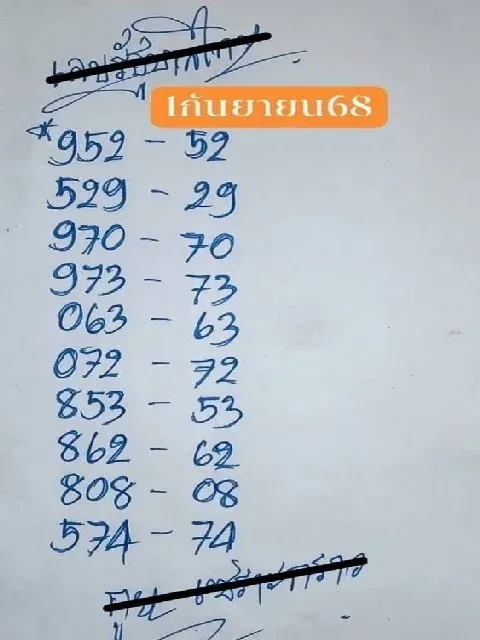 1กันยายน68
*952 - 52
529 - 29
970 - 70
973 - 73
063 - 63
072 - 72
853 - 53
862 - 62
808 - 08
574 - 74